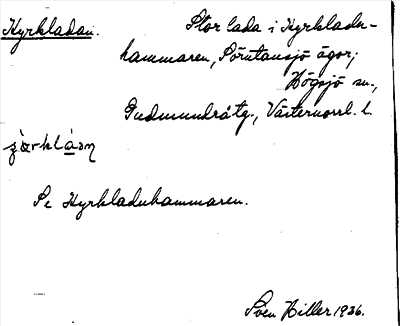 Kyrkladan. Stor lada i Kyrkladu-
hammaren, Sörutansjö ägor;
Högsjö sn.,
Gudmundråtg., Västernorrl. l.
Se Kyrkladuhammaren.
Sven Hiller 1936.